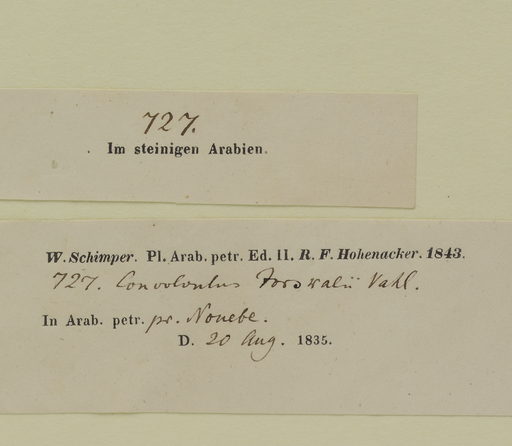 727.
Im steinigen Arabien.
W. Schimper. Pl. Arab. petr. Ed. II. R. F. Hohenacker. 1843.
727. Convolvulus Forskalii Vahl.
In Arab. petr. pr. Nouebe.
D. 20 Aug. 1835.